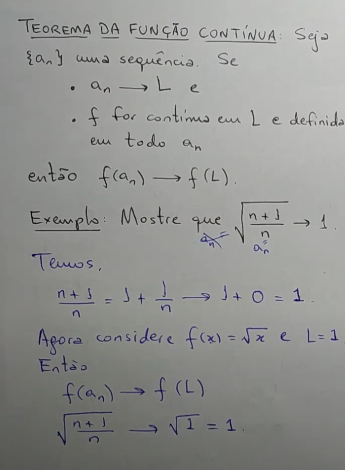 TEOREMA DA FUNÇÃO CONTÍNUA: Seja
{aₙ} uma sequência. Se
• aₙ → L e
• f for contínua em L e definida
em todo aₙ
então f(aₙ) → f(L).
Exemplo: Mostre que √((n+1)/n) → 1.
aₙ=
Temos,
(n+1)/n = 1 + 1/n → 1 + 0 = 1.
Agora considere f(x) = √x e L = 1
Então
f(aₙ) → f(L)
√((n+1)/n) → √1 = 1.